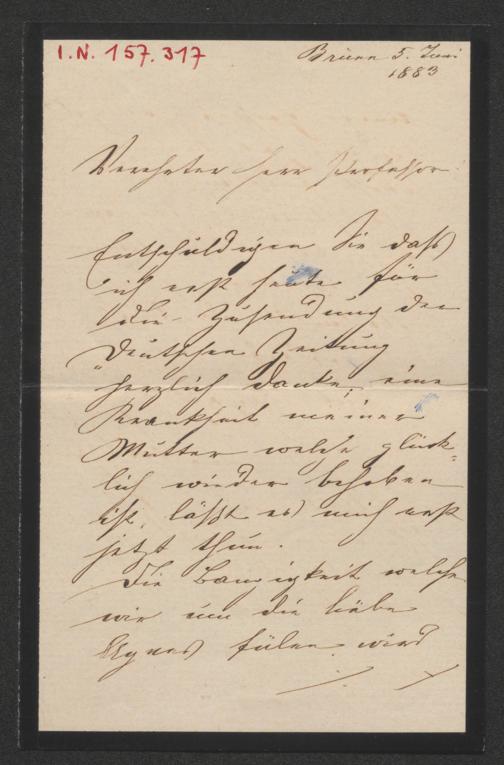 I.N. 157.317
Brünn 5. Juni
1883
Verehrter Herr Professor
Entschuldigen Sie daß
ich erst heute für
die Zusendung der
Deutschen Zeitung
herzlich danke, eine
Krankheit meiner
Mutter welche glück-
lich wieder behoben
ist, läßt es mich erst
jetzt thun.
Die Bangigkeit welche
wir um die liebe
Agnes fülen wird